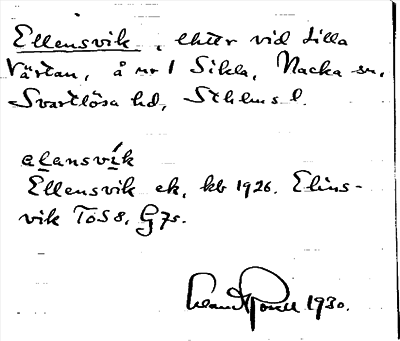 Ellensvik, lht:r vid Lilla
Värtan, å nr 1 Sikla, Nacka sn,
Svartlösa hd, Sthlms l.
elansvik
Ellensvik ek, kb 1926. Elins-
vik ToS 8, G 7s.
1930.